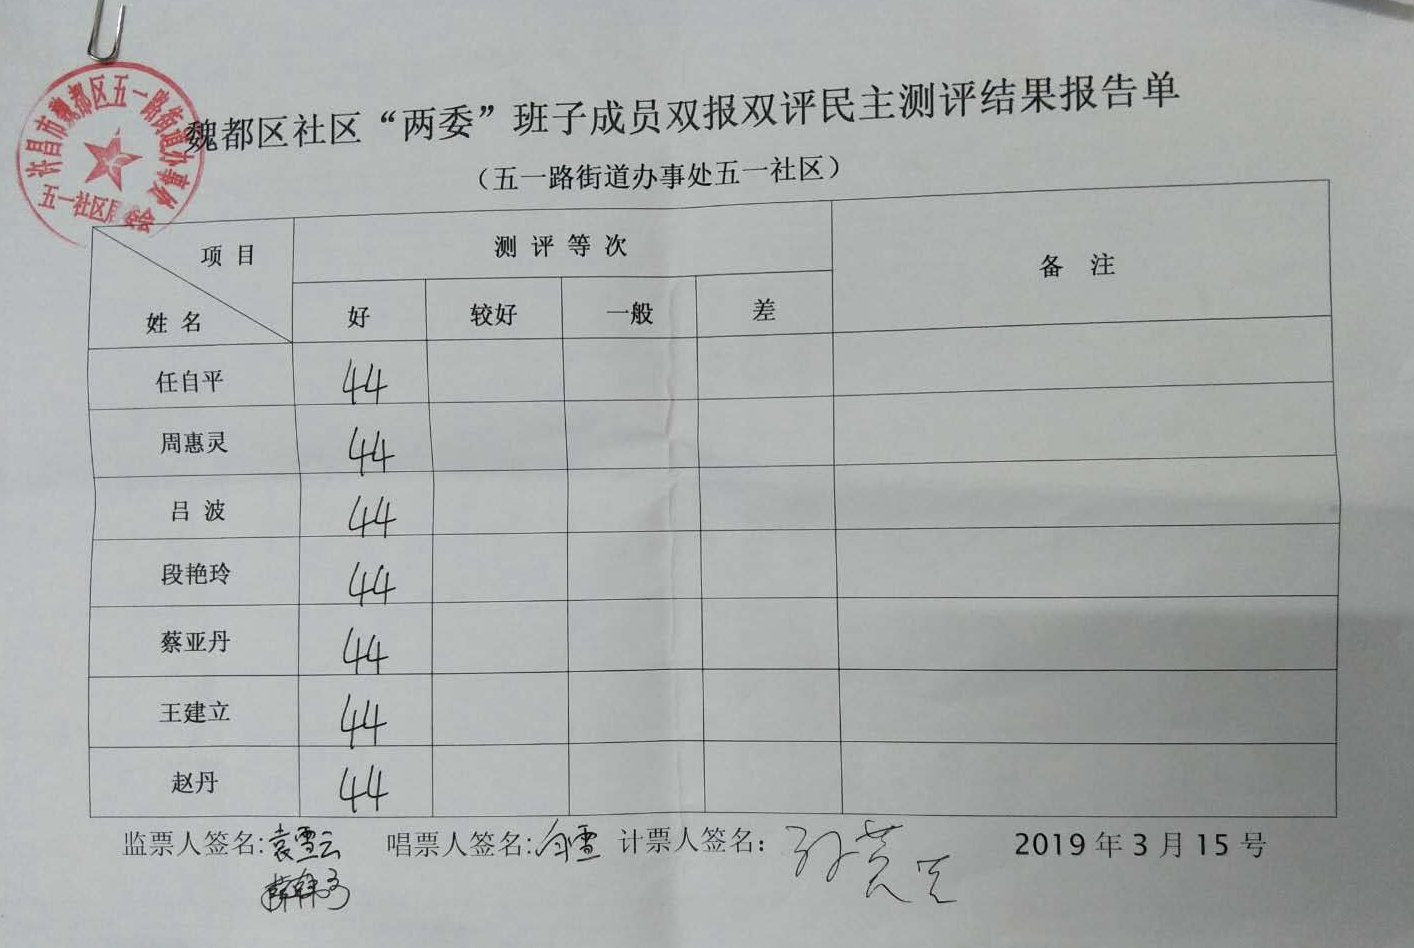 许昌市魏都区五一路街道办事处
五一社区居
魏都区社区“两委”班子成员双报双评民主测评结果报告单
（五一路街道办事处五一社区）
项目 测评等次 备注
姓名 好 较好 一般 差
任自平 44
周惠灵 44
吕波 44
段艳玲 44
蔡亚丹 44
王建立 44
赵丹 44
监票人签名:袁雪云 唱票人签名: 计票人签名： 2019年3月15号